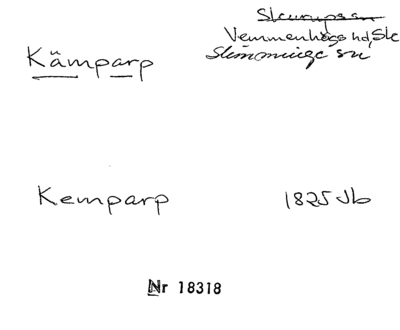 Skurups sn
Vemmenhögs hd, Sk
Slimminge sn
Kämparp
Kemparp
1825 Jb
Nr 18318